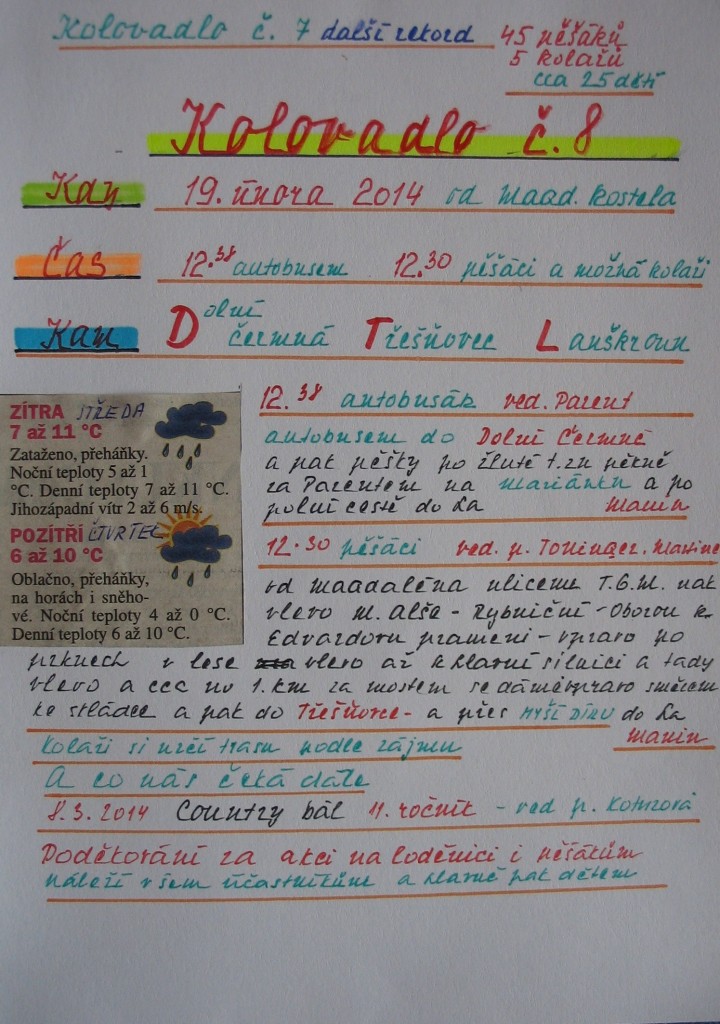 Kolovadlo č. 7 další rekord 45 pěšáků
5 kolařů
cca 25 dětí
Kolovadlo č. 8
Kdy 19. února 2014 od Maad. kostela
Čas 12.38 autobusem 12.30 pěšáci a možná kolaři
Kam Dolní čermná Třešňovec Lanškroun
ZÍTRA STŘEDA
7 až 11 °C
Zataženo, přeháňky.
Noční teploty 5 až 1
°C. Denní teploty 7 až 11 °C.
Jihozápadní vítr 2 až 6 m/s.
POZÍTŘÍ ČTVRTEK
6 až 10 °C
Oblačno, přeháňky,
na horách i sněho-
vé. Noční teploty 4 až 0 °C.
Denní teploty 6 až 10 °C.
12.38 autobusák ved. Parent
autobusem do Dolní Čermné
a pak pěšky po žluté t. zn pěkně
za Parentem na Mariánku a po
polní cestě do La Manin
12.30 pěšáci ved. p. Tominger. Martine
od Maadaléna ulicemi T.G.M. pak
vlevo M. Alše - Rybniční - Oborou k
Edvardovu prameni - vpravo po
prknech v lese vlevo až k hlavní silnici a tady
vlevo a cca po 1. km za mostem se dáme vpravo směrem
ke skládce a pak do Třešňovce - a přes MYŠÍ DÍRU do La
Manin
Kolaři si určí trasu podle zájmu
A co nás čeká dále
8.3.2014 Country bál 11. ročník - ved p.
Poděkování za akci na loděnici i pěšákům
náleží všem účastníkům a hlavně pak dětem